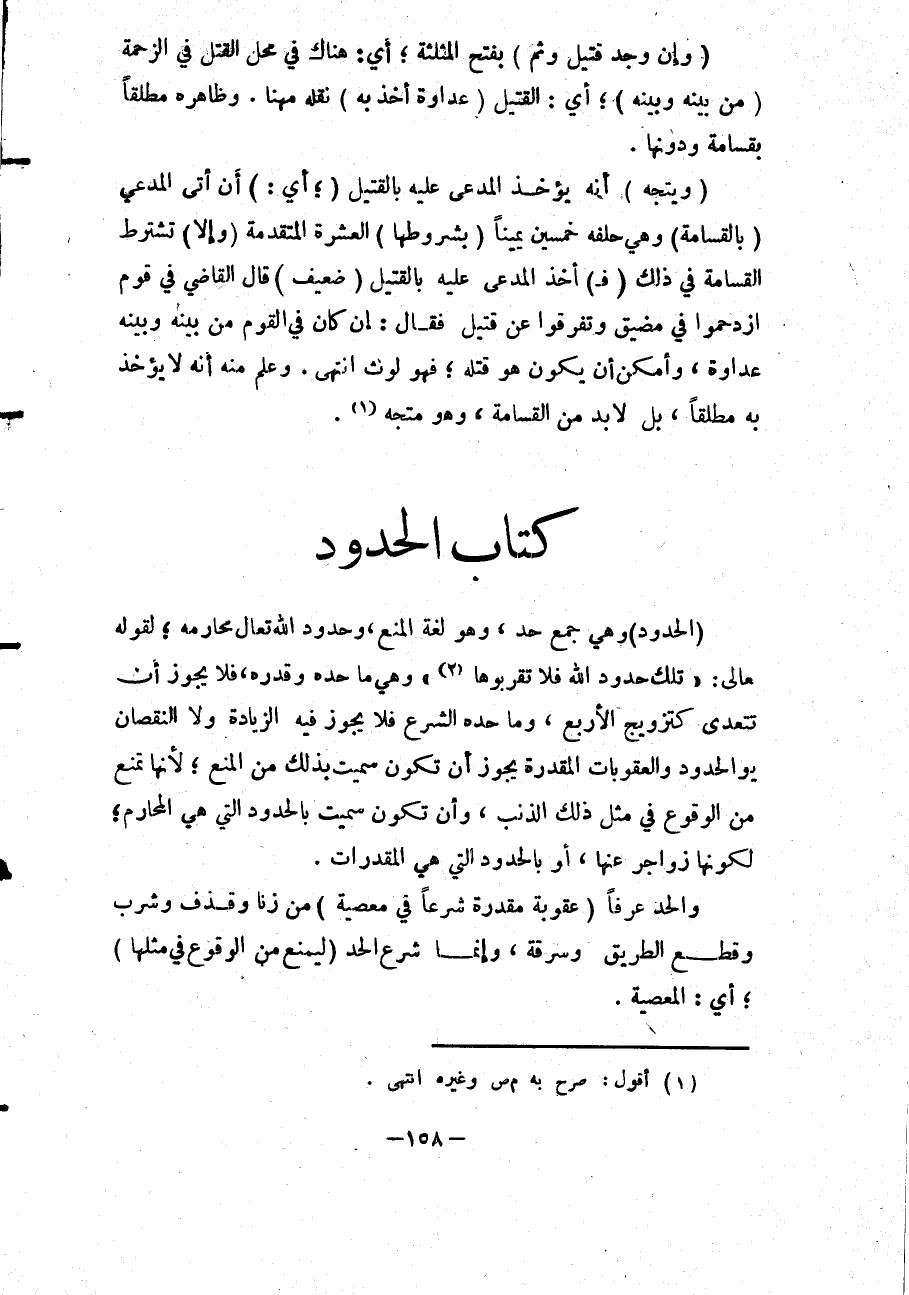 ( وإن وجد قتيل وثم ) بفتح المثلثة ؛ أي: هناك في محل القتل في الزحمة
( من بينه وبينه ) ؛ أي : القتيل ( عداوة أخذ به ) نقله مهنا . وظاهره مطلقاً
بقسامة ودونها .
( ويتجه ) أنه يؤخذ المدعى عليه بالقتيل ( ؛ أي : ) أن أتى المدعي
( بالقسامة) وهي حلفه خمسين يميناً ( بشروطها ) العشرة المتقدمة (وإلا) تشترط
القسامة في ذلك ( فـ) أخذ المدعى عليه بالقتيل ( ضعيف ) قال القاضي في قوم
ازدحموا في مضيق وتفرقوا عن قتيل فقال : إن كان في القوم من بينه وبينه
عداوة ، وأمكن أن يكون هو قتله ؛ فهو لوث انتهى . وعلم منه أنه لا يؤخذ
به مطلقاً ، بل لابد من القسامة ، وهو متجه (١) .
كتاب الحدود
(الحدود)وهي جمع حد ، وهو لغة المنع ، وحدود الله تعال محارمه ؛ لقوله
عالى: « تلك حدود الله فلا تقربوها (٢) » وهي ما حده وقدره، فلا يجوز أن
تتعدى كتزويج الأربع ، وما حده الشرع فلا يجوز فيه الزيادة ولا النقصان
يو الحدود والعقوبات المقدرة يجوز أن تكون سميت بذلك من المنع ؛ لأنها تمنع
من الوقوع في مثل ذلك الذنب ، وأن تكون سميت بالحدود التي هي المحارم؛
لكونها زواجر عنها ، أو بالحدود التي هي المقدرات .
والحد عرفاً ( عقوبة مقدرة شرعاً في معصية ) من زنا وقذف وشرب
وقطع الطريق وسرقة ، وإنما شرع الحد (ليمنع من الوقوع في مثلها )
؛ أي : المعصية .
(١) أقول: صرح به م ص وغيره انتهى .
—١٥٨—